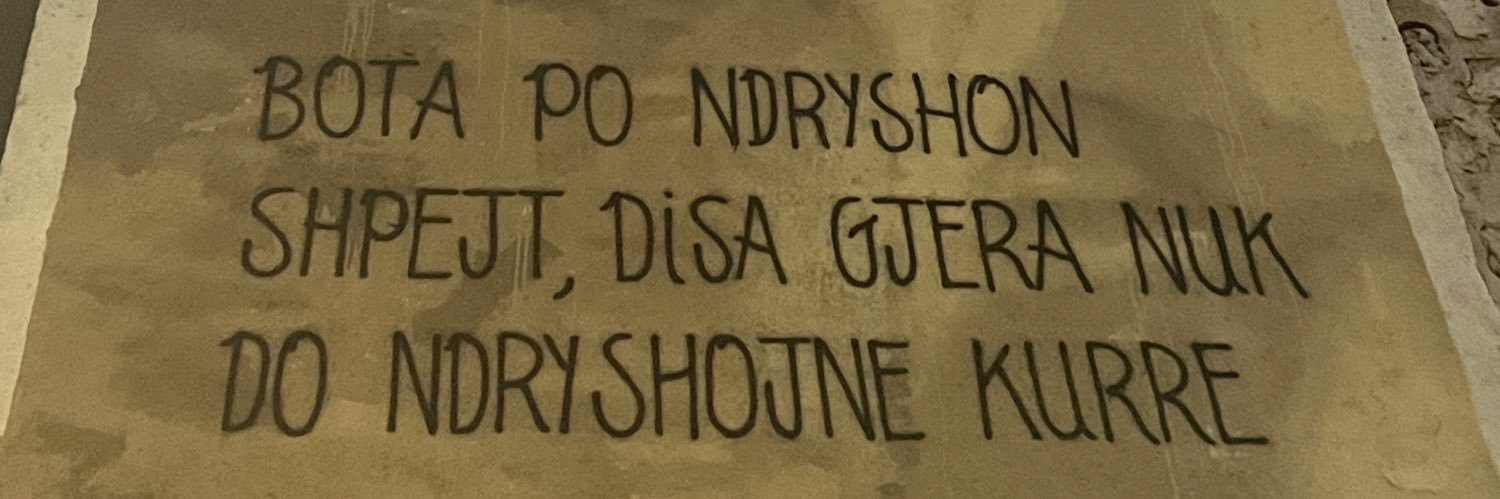 BOTA PO NDRYSHON
SHPEJT, DiSA GJERA NUK
DO NDRYSHOJNE KURRE